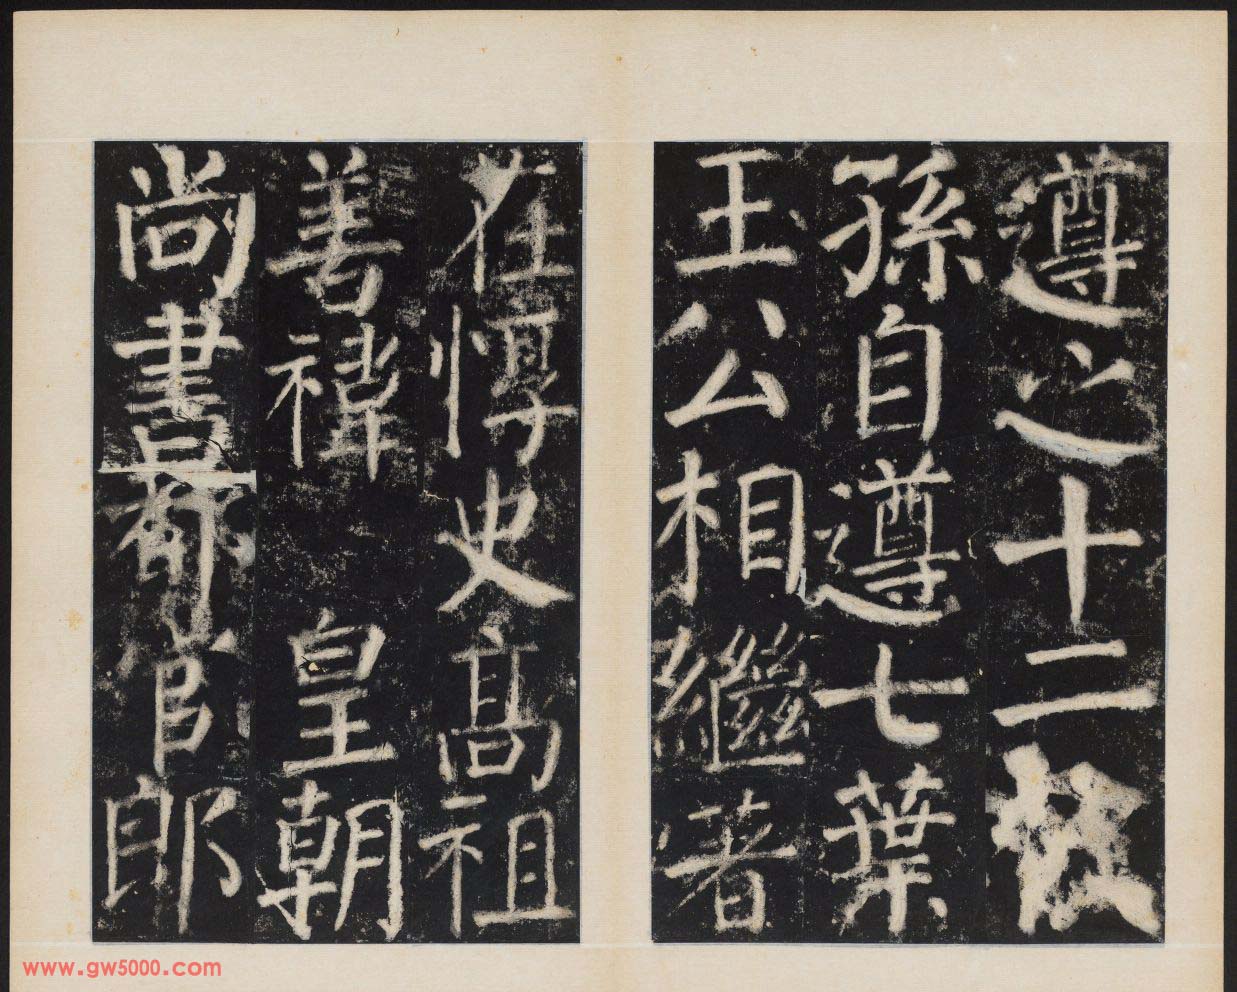 遵之十二
孫自遵七葉
王公相繼著
在惇史高祖
善禕 皇朝
尚書都官郎
www.gw5000.com